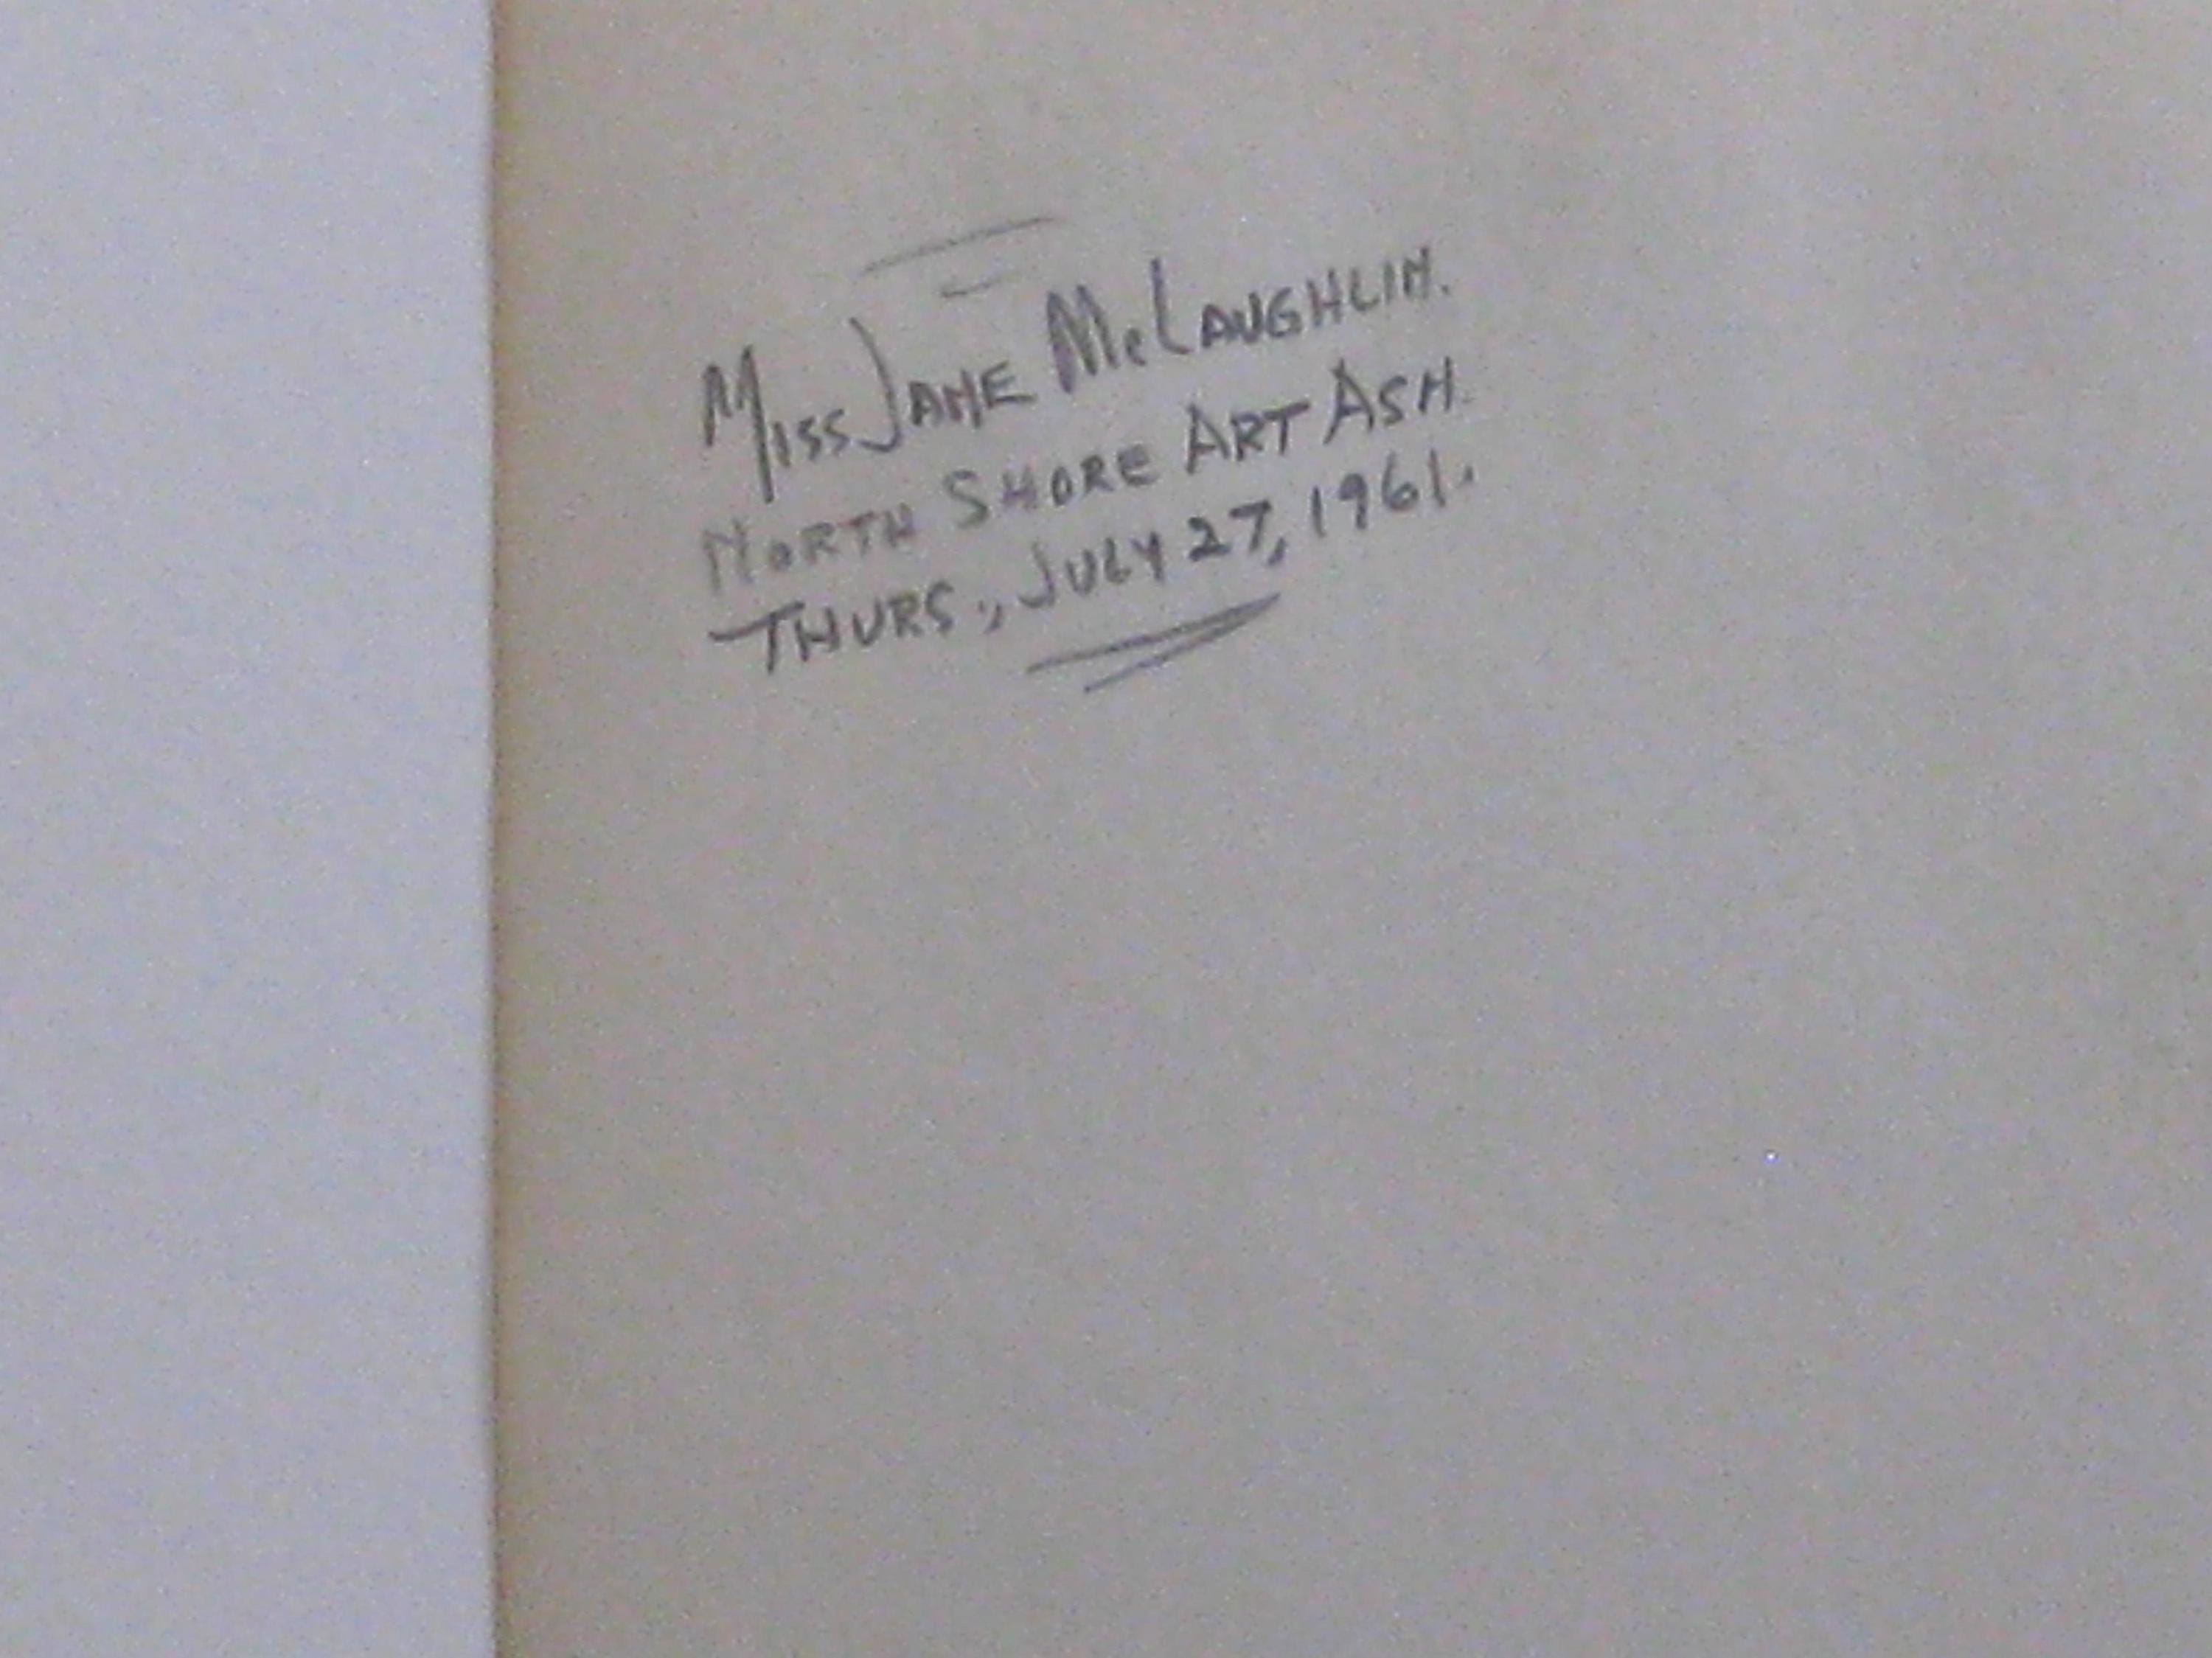 MISS JANE McLAUGHLIN.
NORTH SHORE ART ASN.
THURS., JULY 27, 1961.